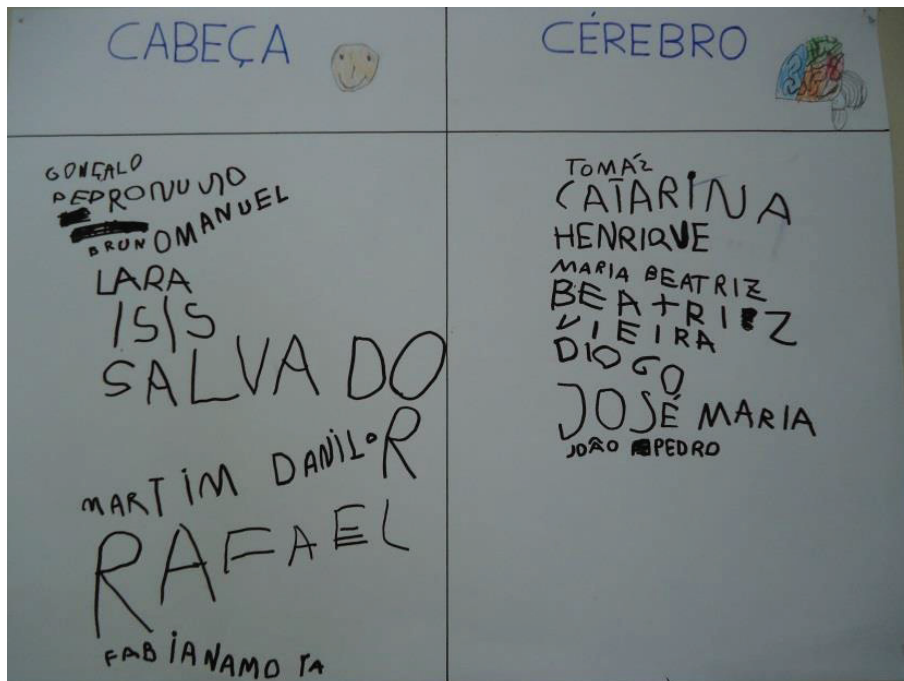 CABEÇA
GONÇALO
PEDRONUNO
BRUNOMANUEL
LARA
ISIS
SALVADOR
MARTIM DANILO
RAFAEL
FABIANAMOTA
CÉREBRO
TOMÁZ
CATARINA
HENRIQUE
MARIA BEATRIZ
BEATRIZ
VIEIRA
DIOGO
JOSÉ MARIA
JOÃO PEDRO